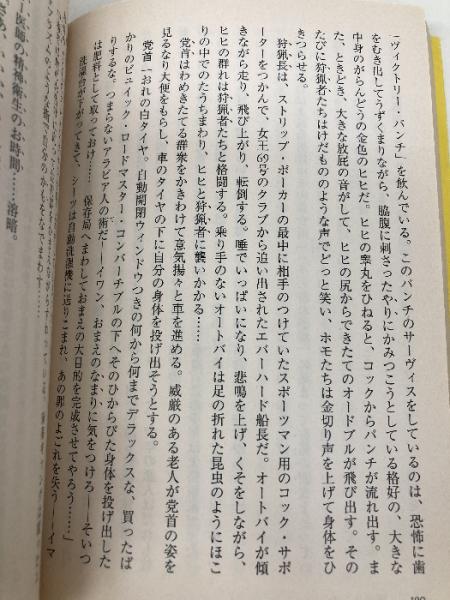 「ヴィクトリー・パンチ」を飲んでいる。このパンチのサーヴィスをしているのは、恐怖に歯
をむき出してうずくまりながら、脇腹に刺さったやりにかみつこうとしている格好の、大きな
中身のがらんどうの金色のヒヒだ。ヒヒの睾丸をひねると、コックからパンチが流れ出す。ま
た、ときどき、大きな放屁の音がして、ヒヒの尻からできたてのオードブルが飛び出す。その
たびに狩猟者たちはけだもののような声でどっと笑い、ホモたちは金切り声を上げて身体をひ
きつらせる。
狩猟長は、ストリップ・ポーカーの最中に相手のつけていたスポーツマン用のコック・サポ
ーターをつかんで、女王69号のクラブから追い出されたエバーハード船長だ。オートバイが傾
きながら走り、飛び上がり、転倒する。唾でいっぱいになり、悲鳴を上げ、くそをしながら、
ヒヒの群れは狩猟者たちと格闘する。乗り手のないオートバイは足の折れた昆虫のようにほこ
りの中でのたうちまわり、ヒヒと狩猟者に襲いかかる……
党首はわめきたてる群衆をかきわけて意気揚々と車を進める。威厳のある老人が党首の姿を
見るなり大便をもらし、車のタイヤの下に自分の身体を投げ出そうとする。
党首「おれの白タイヤ。自動開閉ウィンドウつきの何から何までデラックスな、買ったば
かりのビュイック・ロードマスター・コンバーチブルの下へそのひからびた身体を投げ出した
りするな。つまらないアラビア人の術だ——イワン、おまえのなまりに気をつけろ——そいつ
は肥料として取っておけ……　保存局へまわしておまえの大目的を完成させてやろう……」
洗濯台が下がってきて、シーツは自動洗濯機に送りこまれ、あの罪のよごれを失う——イマ
ー医師の精神衛生のお時間……落暗。